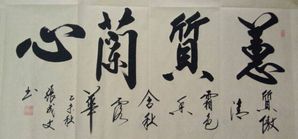 蕙質蘭心
質傲
清
霜色
香
含秋
露
華
乙未秋
張成
书